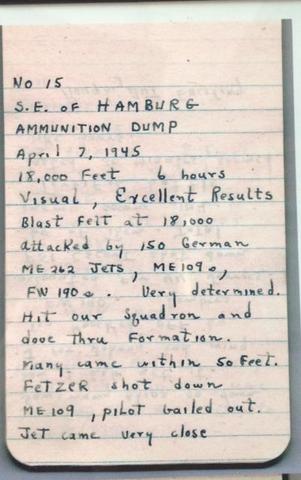 No 15
S.E. of HAMBURG
AMMUNITION DUMP
April 7, 1945
18,000 Feet 6 hours
Visual, Excellent Results
Blast felt at 18,000
attacked by 150 German
ME 262 Jets, ME 109s,
FW 190s. Very determined.
Hit our squadron and
dove thru Formation.
Many came within 50 Feet.
FETZER shot down
ME 109, pilot bailed out.
Jet came very close